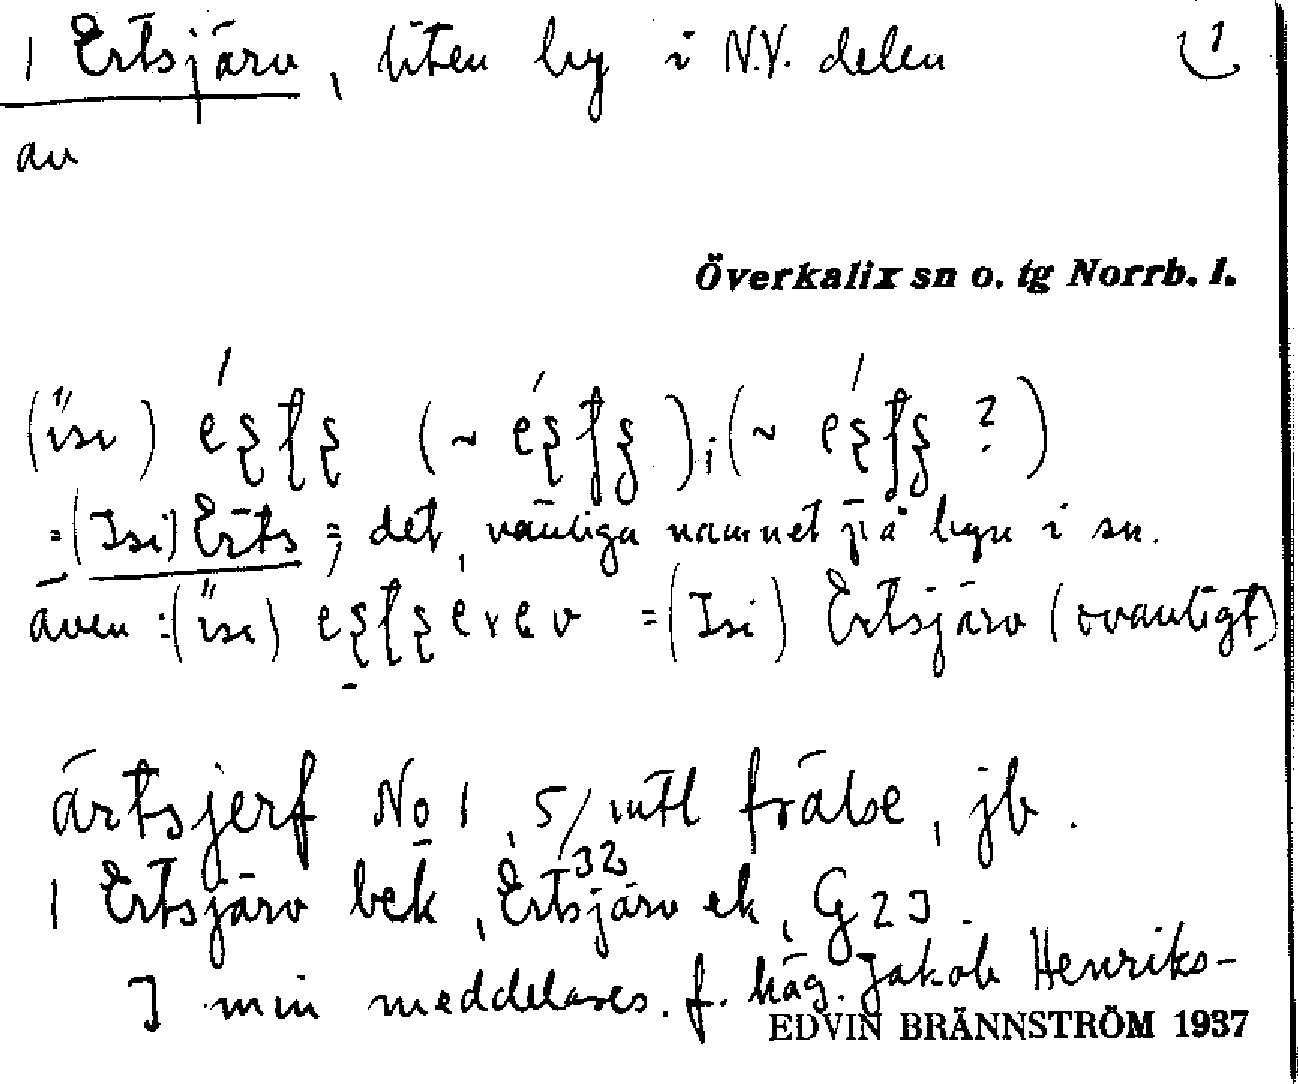 1 Ertsjärv, liten by i N.V. delen 1
av
Överkalix sn o. tg Norrb. l.
(isi) (~ ); (~ ?)
=(Isi) Erts; det vanliga namnet på byn i sn.
även :(isi) =(Isi) Ertsjärv (ovanligt)
ärtsjerf No 1, 5/32 mtl frälse, jb.
1 Ertsjärv bek, Ertsjärv ek, G 23.
J min meddelares. f. häg. Jakob Henriks-
EDVIN BRÄNNSTRÖM 1937